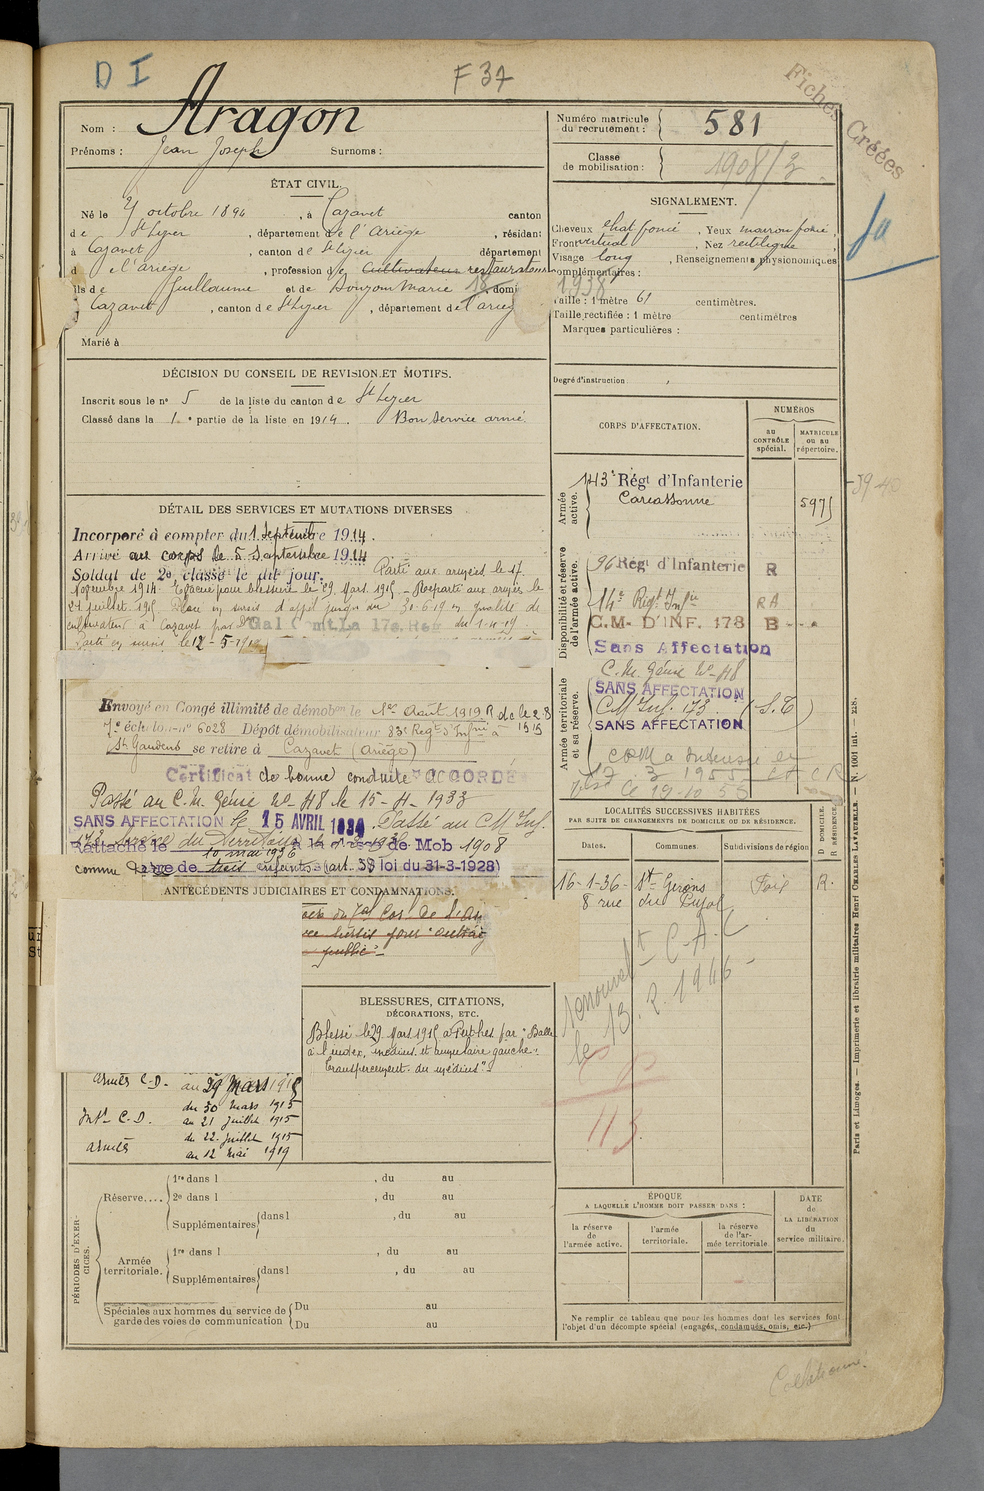 D I
F 37
Fiches Créées
Nom : Aragon
Prénoms : Jean Joseph Surnoms :
Numéro matricule du recrutement : 581
Classe de mobilisation : 1908/2
ÉTAT CIVIL.
Né le 7 octobre 1894, à Cazavet canton
de St Lizier, département de l'Ariège, résidant
à Cazavet, canton de St Lizier département
d e l'ariège, profession de Cultivateur restaurateur
ils de Guillaume et de Doujom Marie domi
Cazavet, canton de St Lizier, département de l'arieg
Marié à
SIGNALEMENT.
Cheveux chat foncé, Yeux marron foncé,
Front vertical, Nez rectiligne,
Visage long, Renseignements physionomiques
complémentaires :
18 1938
Taille : 1 mètre 61 centimètres.
Taille rectifiée : 1 mètre centimètres
Marques particulières :
Degré d'instruction :
DÉCISION DU CONSEIL DE REVISION ET MOTIFS.
Inscrit sous le no 5 de la liste du canton de St Lizier
Classé dans la 1. e partie de la liste en 1914. Bon service armé.
DÉTAIL DES SERVICES ET MUTATIONS DIVERSES
Incorporé à compter du 1 Septembre 1914.
Arrivé au corps le 5 Septembre 1914
Soldat de 2e classe le dit jour. Parti aux armées le 17
novembre 1914. Evacué pour blessure le 29 Mars 1915 - Reparti aux armées le
21 juillet 1915. Placé en sursis d'appel jusqu'au 30-6-19 en qualité de
cultivateur à Cazavet par Gal Cmt La 17e Reg du 1-4-19.
Parti en sursis le 12-5-1919
Envoyé en Congé illimité de démobon le 1er Août 1919
7e échelon no 6028 Dépôt démobilisateur 83e Regt d'Infrie à
St Gaudens se retire à Cazavet (Ariège)
Certificat de bonne conduite ACCORDÉ
Passé au C.M. Génie No 48 le 15-4-1933
SANS AFFECTATION le 15 AVRIL 1934. Passé au CM Inf.
Rattaché le 10 mai 1936 à la classe de Mob 1908
comme père de trois enfants (art. 58 loi du 31-3-1928)
ANTÉCÉDENTS JUDICIAIRES ET CONDAMNATIONS.
public"
BLESSURES, CITATIONS,
DÉCORATIONS, ETC.
Blessé le 29 Mars 1915 à Perthes par "Balle
à l'index, médius et annulaire gauche.
transpercement du médius"
armés C-D. au 29 Mars 1915
Intr C-D. du 30 mars 1915
au 21 juillet 1915
armés du 22 juillet 1915
au 12 mai 1919
PÉRIODES D'EXERCICES.
Réserve.... 1re dans l , du au
2e dans l , du au
Supplémentaires dans l , du au
Armée territoriale. 1re dans l , du au
Supplémentaires dans l , du au
Spéciales aux hommes du service de garde des voies de communication
Du au
Du au
CORPS D'AFFECTATION.
NUMÉROS
au CONTRÔLE spécial.
MATRICULE ou au répertoire.
Armée active.
143e Régt d'Infanterie
Carcassonne
5975
Disponibilité et réserve de l'armée active.
96 Régt d'Infanterie R
14e Régt Infie RA
C.M. D'INF. 178 B
Sans Affectation
C.M. Génie No 48
Armée territoriale et sa réserve.
SANS AFFECTATION
CM Inf. 173. (S.T)
SANS AFFECTATION
LOCALITÉS SUCCESSIVES HABITÉES
PAR SUITE DE CHANGEMENTS DE DOMICILE OU DE RÉSIDENCE.
D DOMICILE. R RÉSIDENCE.
Dates. Communes Subdivisions de région
16-1-36- St Girons Foix R.
8 rue du Pujol
renouvelt C-A-C
le 13. 2. 1946
113
ÉPOQUE
A LAQUELLE L'HOMME DOIT PASSER DANS :
la réserve de l'armée active.
l'armée territoriale.
la réserve de l'armée territoriale.
DATE de LA LIBÉRATION du service militaire.
Ne remplir ce tableau que pour les hommes dont les services font
l'objet d'un décompte spécial (engagés, condamnés, omis, etc.)
Paris et Limoges. — Imprimerie et librairie militaires Henri CHARLES-LAVAUZELLE. — N. 1001 int. — 228.
Collationné.